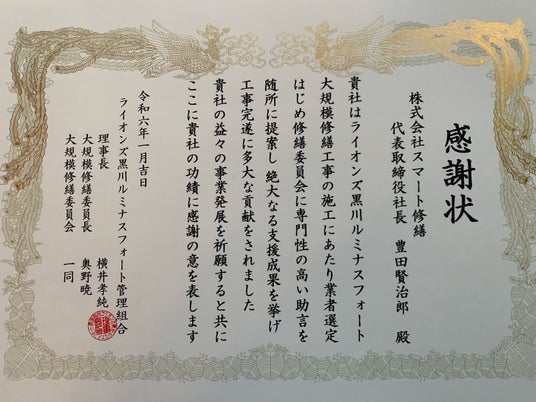 感謝状
株式会社スマート修繕
代表取締役社長 豊田賢治郎 殿
貴社はライオンズ黒川ルミナスフォート
大規模修繕工事の施工にあたり業者選定
はじめ修繕委員会に専門性の高い助言を
随所に提案し 絶大なる支援成果を挙げ
工事完遂に多大な貢献をされました
貴社の益々の事業発展を祈願すると共に
ここに貴社の功績に感謝の意を表します
令和六年一月吉日
ライオンズ黒川ルミナスフォート管理組合
理事長 横井孝純
大規模修繕委員長 奥野暁
大規模修繕委員会 一同